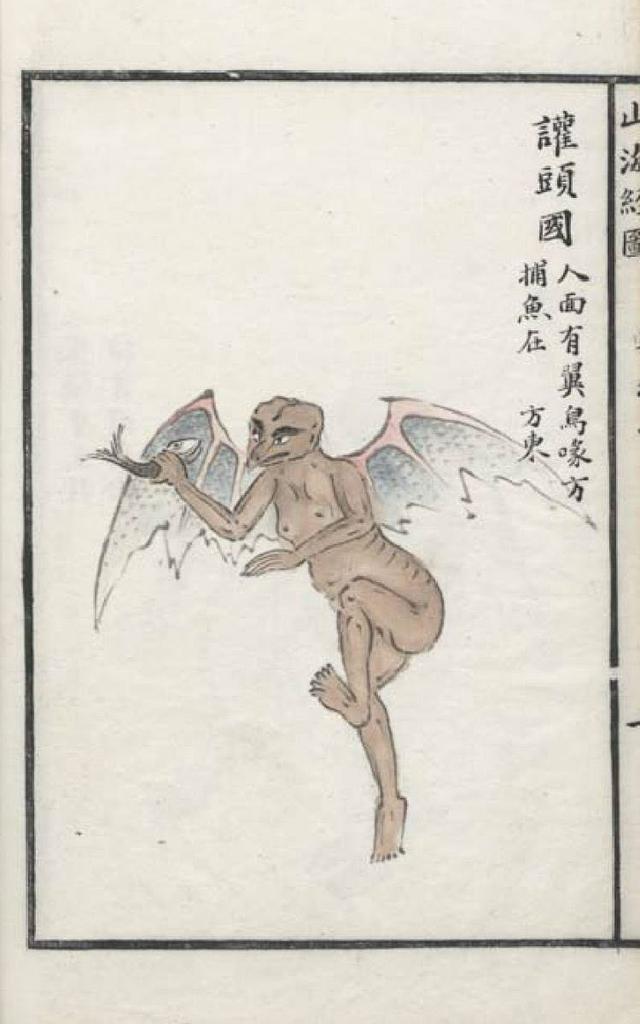 山海經圖
讙頭國
人面有翼鳥喙方
捕魚在 方東